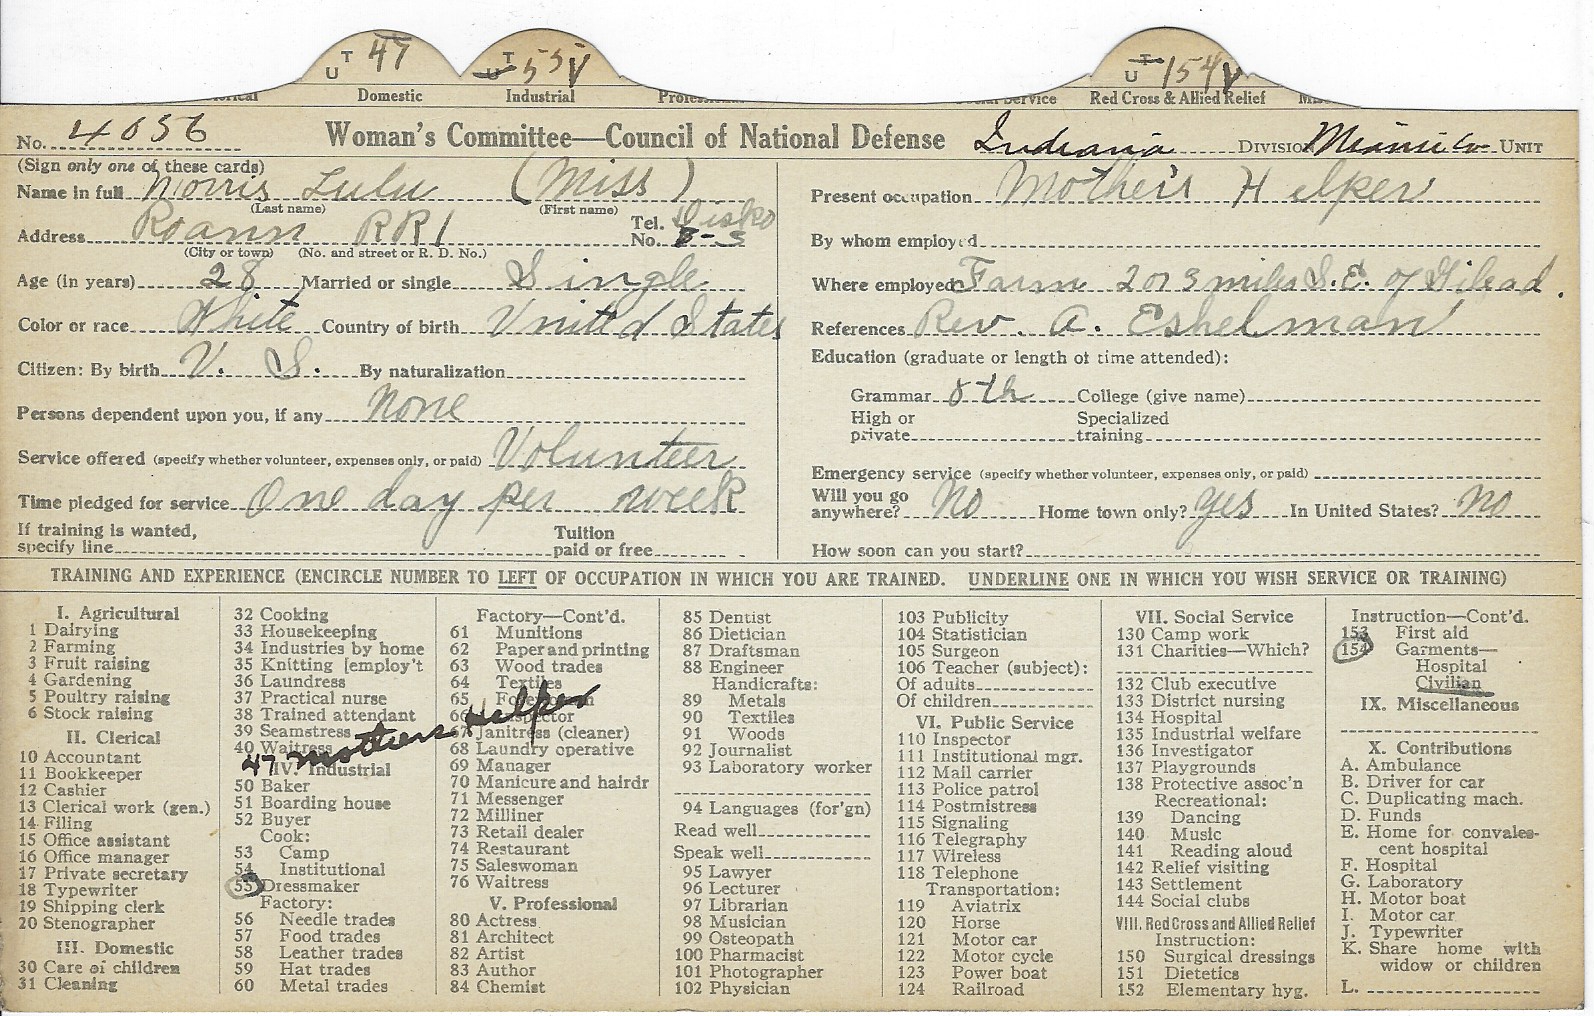 U T 47 U T 55 V U T 154 V
Domestic Industrial Red Cross & Allied Relief
No. 4056 Woman's Committee—Council of National Defense Indiana DIVISION Miami Co UNIT
(Sign only one of these cards)
Name in full Morris Lulu (Miss)
(Last name) (First name)
Address Roann RR1 Tel. No. Disko B-S
(City or town) (No. and street or R. D. No.)
Age (in years) 28 Married or single Single
Color or race White Country of birth United States
Citizen: By birth U. S. By naturalization
Persons dependent upon you, if any None
Service offered (specify whether volunteer, expenses only, or paid) Volunteer
Time pledged for service One day per week
If training is wanted, Tuition
specify line paid or free
Present occupation Mother's Helper
By whom employed
Where employed Farm 2 or 3 miles S.E. of Gilead.
References Rev. A. Eshelman
Education (graduate or length of time attended):
Grammar 8th College (give name)
High or Specialized
private training
Emergency service (specify whether volunteer, expenses only, or paid)
Will you go
anywhere? No Home town only? yes In United States? no
How soon can you start?
TRAINING AND EXPERIENCE (ENCIRCLE NUMBER TO LEFT OF OCCUPATION IN WHICH YOU ARE TRAINED. UNDERLINE ONE IN WHICH YOU WISH SERVICE OR TRAINING)
I. Agricultural
1 Dairying
2 Farming
3 Fruit raising
4 Gardening
5 Poultry raising
6 Stock raising
II. Clerical
10 Accountant
11 Bookkeeper
12 Cashier
13 Clerical work (gen.)
14 Filing
15 Office assistant
16 Office manager
17 Private secretary
18 Typewriter
19 Shipping clerk
20 Stenographer
III. Domestic
30 Care of children
31 Cleaning
32 Cooking
33 Housekeeping
34 Industries by home
35 Knitting [employ't
36 Laundress
37 Practical nurse
38 Trained attendant
39 Seamstress
40 Waitress
47 Mothers Helper
IV. Industrial
50 Baker
51 Boarding house
52 Buyer
Cook:
53 Camp
54 Institutional
55 Dressmaker
Factory:
56 Needle trades
57 Food trades
58 Leather trades
59 Hat trades
60 Metal trades
Factory—Cont'd.
61 Munitions
62 Paper and printing
63 Wood trades
64 Textiles
65 Forewoman
66 Inspector
67 Janitress (cleaner)
68 Laundry operative
69 Manager
70 Manicure and hairdr
71 Messenger
72 Milliner
73 Retail dealer
74 Restaurant
75 Saleswoman
76 Waitress
V. Professional
80 Actress
81 Architect
82 Artist
83 Author
84 Chemist
85 Dentist
86 Dietician
87 Draftsman
88 Engineer
Handicrafts:
89 Metals
90 Textiles
91 Woods
92 Journalist
93 Laboratory worker
94 Languages (for'gn)
Read well
Speak well
95 Lawyer
96 Lecturer
97 Librarian
98 Musician
99 Osteopath
100 Pharmacist
101 Photographer
102 Physician
103 Publicity
104 Statistician
105 Surgeon
106 Teacher (subject):
Of adults
Of children
VI. Public Service
110 Inspector
111 Institutional mgr.
112 Mail carrier
113 Police patrol
114 Postmistress
115 Signaling
116 Telegraphy
117 Wireless
118 Telephone
Transportation:
119 Aviatrix
120 Horse
121 Motor car
122 Motor cycle
123 Power boat
124 Railroad
VII. Social Service
130 Camp work
131 Charities—Which?
132 Club executive
133 District nursing
134 Hospital
135 Industrial welfare
136 Investigator
137 Playgrounds
138 Protective assoc'n
Recreational:
139 Dancing
140 Music
141 Reading aloud
142 Relief visiting
143 Settlement
144 Social clubs
VIII. Red Cross and Allied Relief
Instruction:
150 Surgical dressings
151 Dietetics
152 Elementary hyg.
Instruction—Cont'd.
153 First aid
154 Garments—
Hospital
Civilian
IX. Miscellaneous
X. Contributions
A. Ambulance
B. Driver for car
C. Duplicating mach.
D. Funds
E. Home for convales-
cent hospital
F. Hospital
G. Laboratory
H. Motor boat
I. Motor car
J. Typewriter
K. Share home with
widow or children
L.